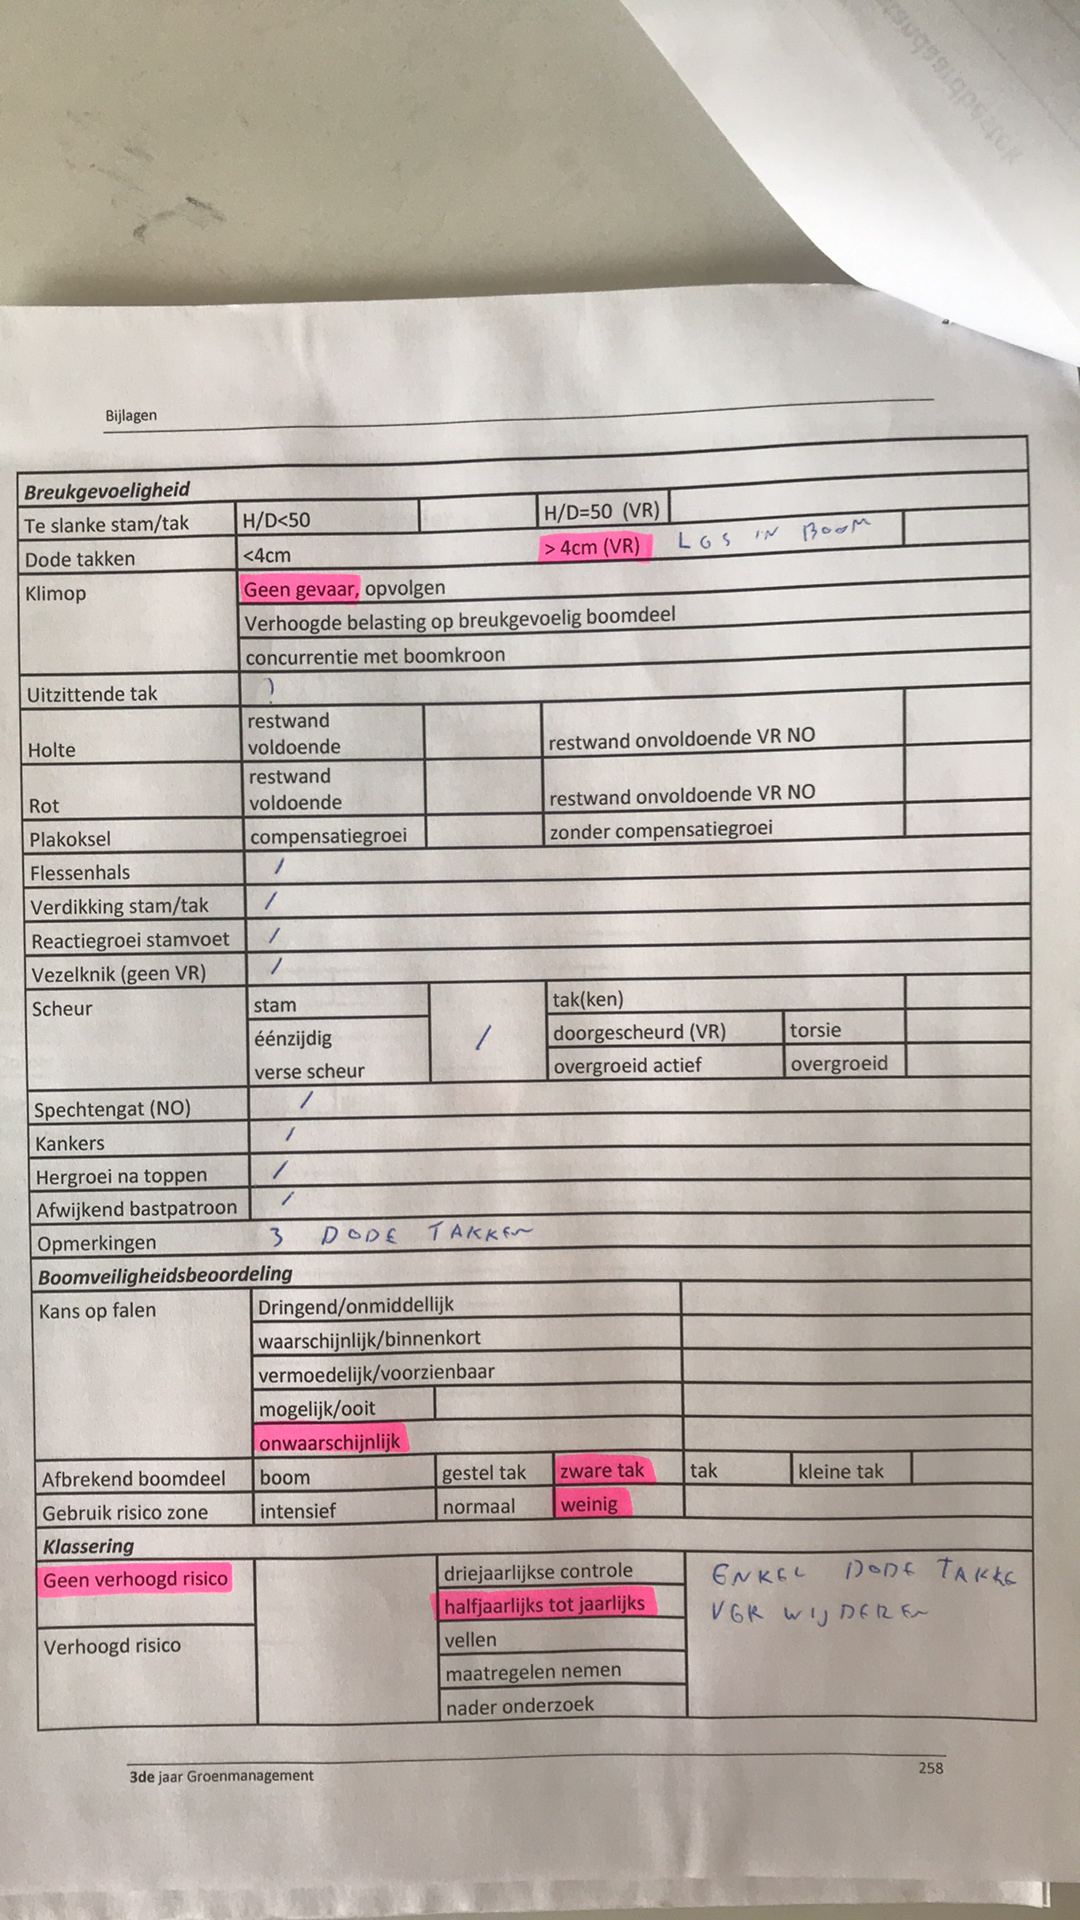 Bijlagen
Breukgevoeligheid
Te slanke stam/tak H/D<50 H/D=50 (VR)
Dode takken <4cm > 4cm (VR) LGS IN BOOM
Klimop Geen gevaar, opvolgen
Verhoogde belasting op breukgevoelig boomdeel
concurrentie met boomkroon
Uitzittende tak
Holte restwand voldoende restwand onvoldoende VR NO
Rot restwand voldoende restwand onvoldoende VR NO
Plakoksel compensatiegroei zonder compensatiegroei
Flessenhals /
Verdikking stam/tak /
Reactiegroei stamvoet /
Vezelknik (geen VR) /
Scheur stam / tak(ken)
éénzijdig doorgescheurd (VR) torsie
verse scheur overgroeid actief overgroeid
Spechtengat (NO) /
Kankers /
Hergroei na toppen /
Afwijkend bastpatroon /
Opmerkingen 3 DODE TAKKEN
Boomveiligheidsbeoordeling
Kans op falen Dringend/onmiddellijk
waarschijnlijk/binnenkort
vermoedelijk/voorzienbaar
mogelijk/ooit
onwaarschijnlijk
Afbrekend boomdeel boom gestel tak zware tak tak kleine tak
Gebruik risico zone intensief normaal weinig
Klassering
Geen verhoogd risico driejaarlijkse controle ENKEL DODE TAKKE
halfjaarlijks tot jaarlijks VERWIJDEREN
Verhoogd risico vellen
maatregelen nemen
nader onderzoek
3de jaar Groenmanagement 258